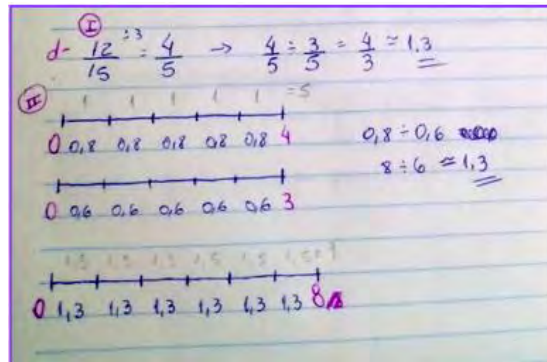 I
d- 12/15 ÷3 = 4/5 → 4/5 ÷ 3/5 = 4/3 ≈ 1,3
II
1 1 1 1 1 = 5
0 0,8 0,8 0,8 0,8 0,8 4
0,8 ÷ 0,6
8 ÷ 6 ≈ 1,3
0 0,6 0,6 0,6 0,6 0,6 3
1,5 1,5 1,5 1,5 1,5
0 1,3 1,3 1,3 1,3 1,3 1,3 8